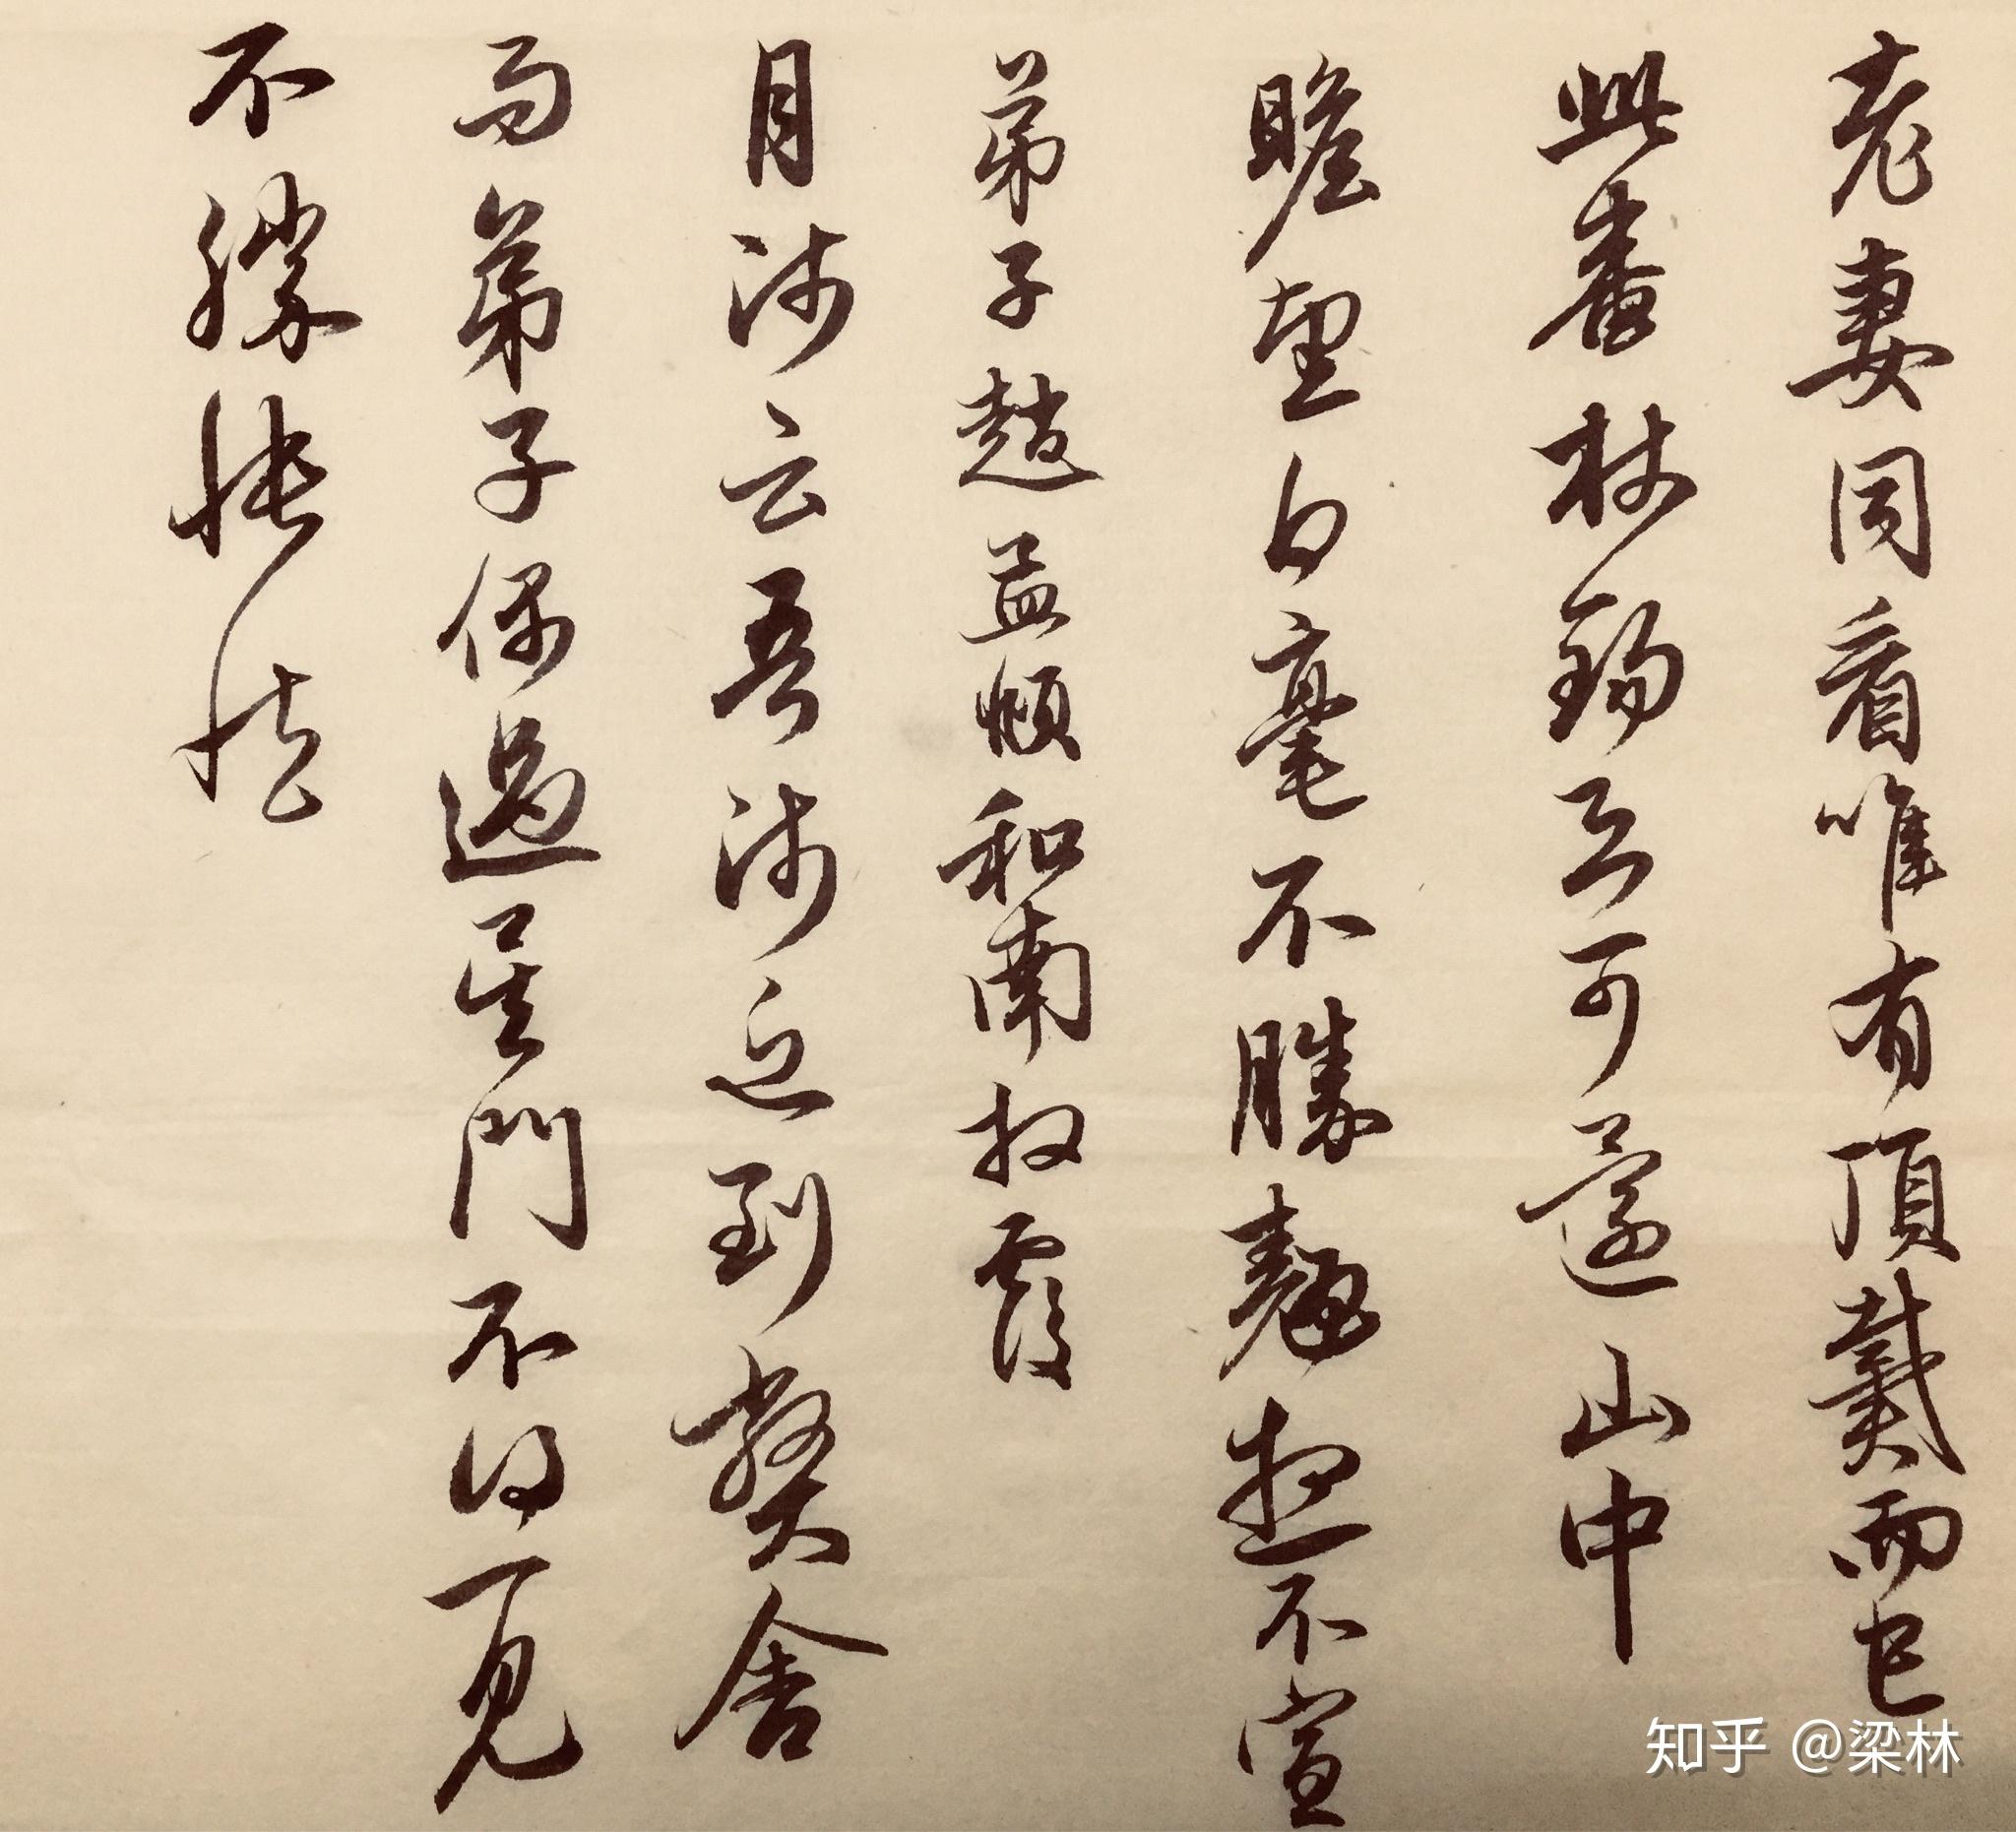 老妻同看唯有頂戴而已
此番杖錫亦可還山中
瞻望白毫不勝翹想不宣
弟子趙孟頫和南拜覆
月師云吾師近到弊舍
而弟子偶過吳門不得一見
不勝悵
知乎 @梁林